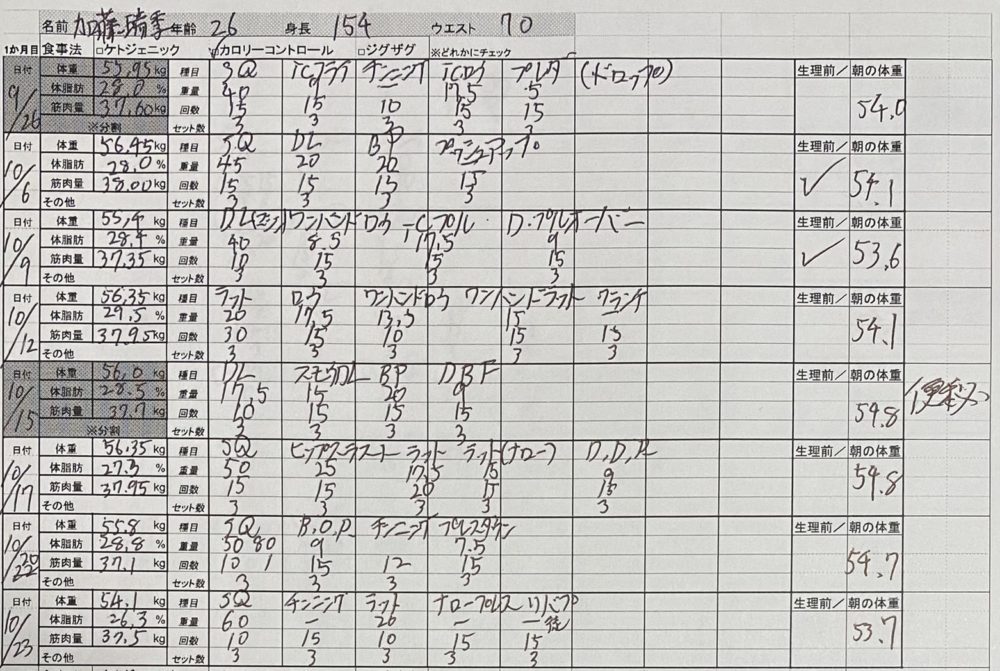 名前 加藤 晴季 年齢 26 身長 154 ウエスト 70
1か月目 食事法 □ケトジェニック ☑カロリーコントロール □ジグザグ ※どれかにチェック
日付 体重 55.95 kg 種目 SQ ICフライ チンニング ICロウ プレスダ (ドロップ) 生理前/ 朝の体重
9/26 体脂肪 28.0 % 重量 40 9 ー 17.5 5 54.0
筋肉量 37.60 kg 回数 15 15 10 15 15
※分割 セット数 3 3 3 3 3
日付 体重 56.45 kg 種目 SQ DL BP プッシュアップ 生理前/ 朝の体重
10/6 体脂肪 28.0 % 重量 45 20 20 ✓ 54.1
筋肉量 38.00 kg 回数 15 15 15 15
その他 セット数 3 3 3 3
日付 体重 55.4 kg 種目 DL ワンハンドロウ プル D.プルオーバー 生理前/ 朝の体重
10/9 体脂肪 28.4 % 重量 40 8.5 17.5 9 ✓ 53.6
筋肉量 37.35 kg 回数 10 15 15 15
その他 セット数 3 3 3 3
日付 体重 56.35 kg 種目 ラット ロウ ワンハンドロウ ワンハンドラット クランチ 生理前/ 朝の体重
10/12 体脂肪 29.5 % 重量 20 17.5 13.5 15 54.1
筋肉量 37.95 kg 回数 30 15 10 15 15
その他 セット数 3 3 3 3 3
日付 体重 56.0 kg 種目 DL スモウDL BP DBF 生理前/ 朝の体重
10/15 体脂肪 28.5 % 重量 17.5 15 20 9 54.8 便秘
筋肉量 37.7 kg 回数 10 15 15 15
※分割 セット数 3 3 3 3
日付 体重 56.35 kg 種目 SQ ヒップスラスト ラット ラット(ナロー) D.D.R 生理前/ 朝の体重
10/17 体脂肪 27.3 % 重量 50 25 17.5 15 9 54.8
筋肉量 37.95 kg 回数 15 15 20 15 15
その他 セット数 3 3 3 3 3
日付 体重 55.8 kg 種目 SQ B.O.R チンニング プレスダウン 生理前/ 朝の体重
10/20 22 体脂肪 28.8 % 重量 50 80 9 7.5 54.7
筋肉量 37.1 kg 回数 10 1 15 12 15
その他 セット数 3 3 3 3
日付 体重 54.1 kg 種目 SQ チンニング ラット ナロープレス リバプ 生理前/ 朝の体重
10/23 体脂肪 26.3 % 重量 60 ー 20 ー ー 後 53.7
筋肉量 37.5 kg 回数 10 15 10 15 15
その他 セット数 3 3 3 3 3